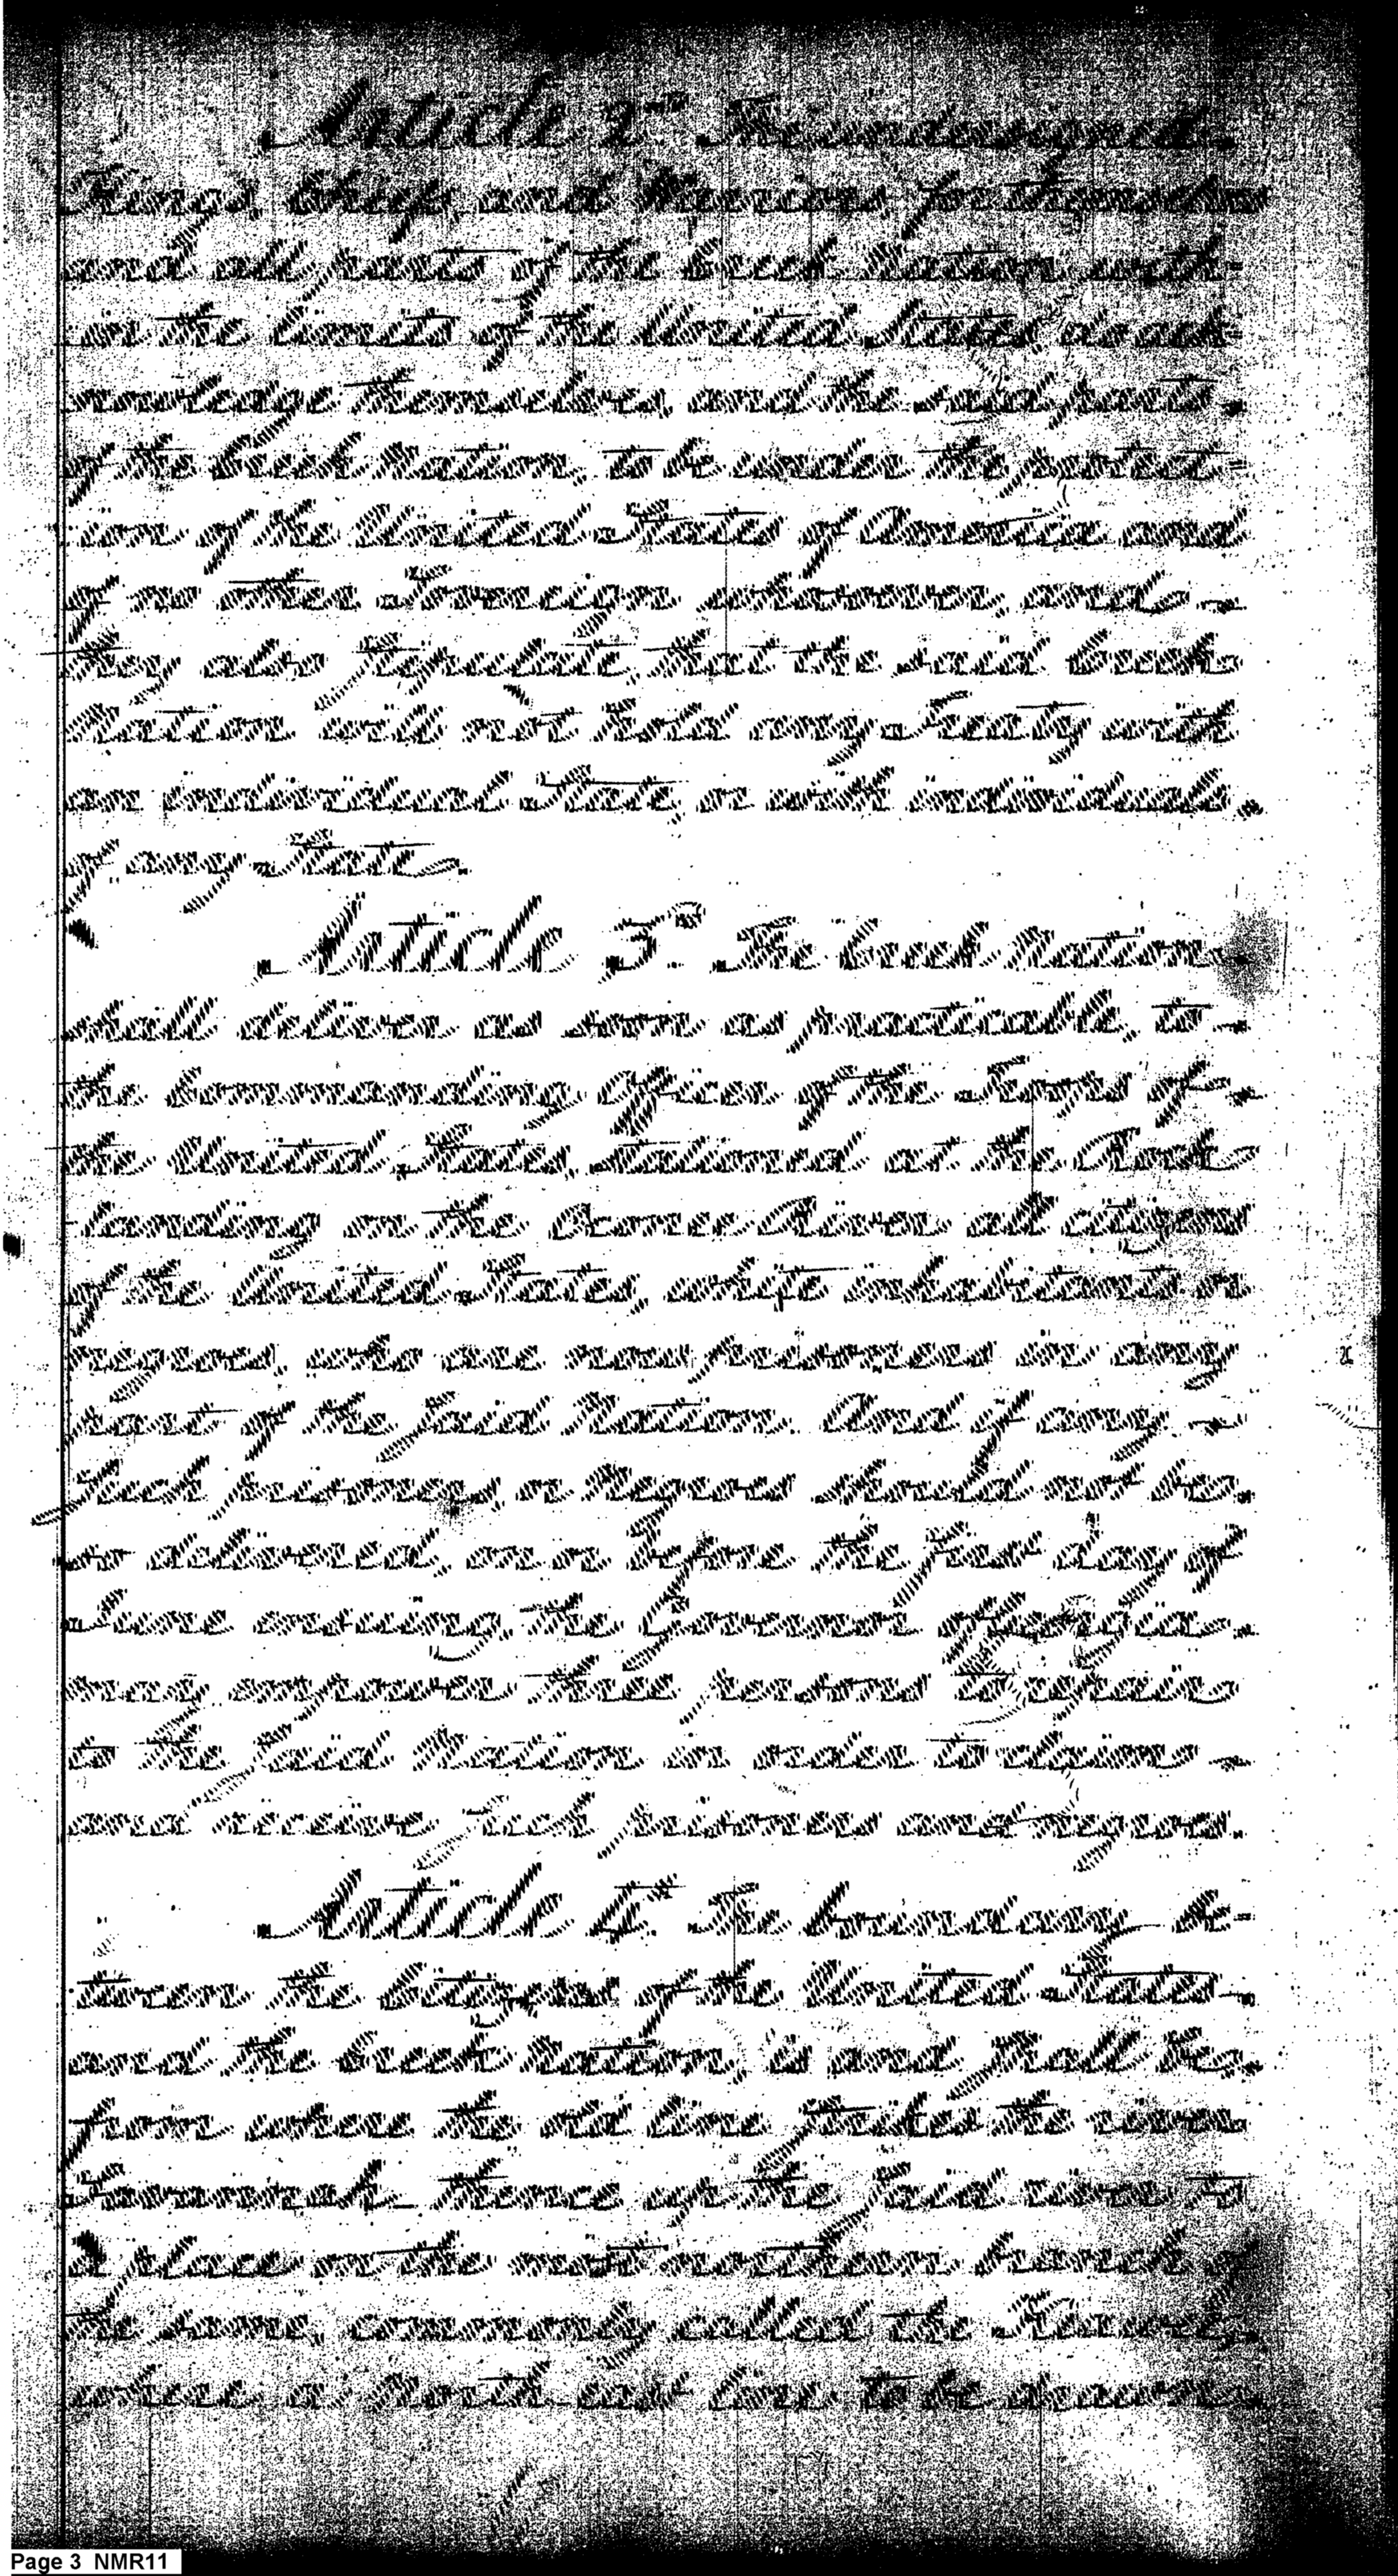 Article 2d. The undersigned
Kings, Chiefs, and Warriors, for themselves
and all parts of the Creek Nation with=
in the limits of the United States, do ack=
nowledge themselves, and the said parts
of the Creek Nation, to be under the protect=
ion of the United States of America and
of no other Sovereign whosoever, and
they also stipulate, that the said Creek
Nation will not hold any Treaty with
an individual State, or with individuals
of any State.
Article 3d. The Creek Nation
shall deliver as soon as practicable, to
the Commanding Officer of the Troops of
the United States, stationed at the Rock
landing on the Oconee River, all citizens
of the United States, white inhabitants or
negroes, who are now prisoners in any
part of the said Nation. And if any
such prisoners, or Negroes should not be
so delivered, on or before the first day of
June ensuing, the Governor of Georgia
may empower three persons to repair
to the said Nation in order to claim
and receive such prisoners and negroes.
Article 4th. The boundary be=
tween the Citizens of the United States
and the Creek Nation, is and shall be,
from where the old line strikes the river
Savannah. thence up the said river to
a place on the most northern branch of
the same, commonly called the Keowee,
where a North-east line to be drawn
Page 3 NMR11